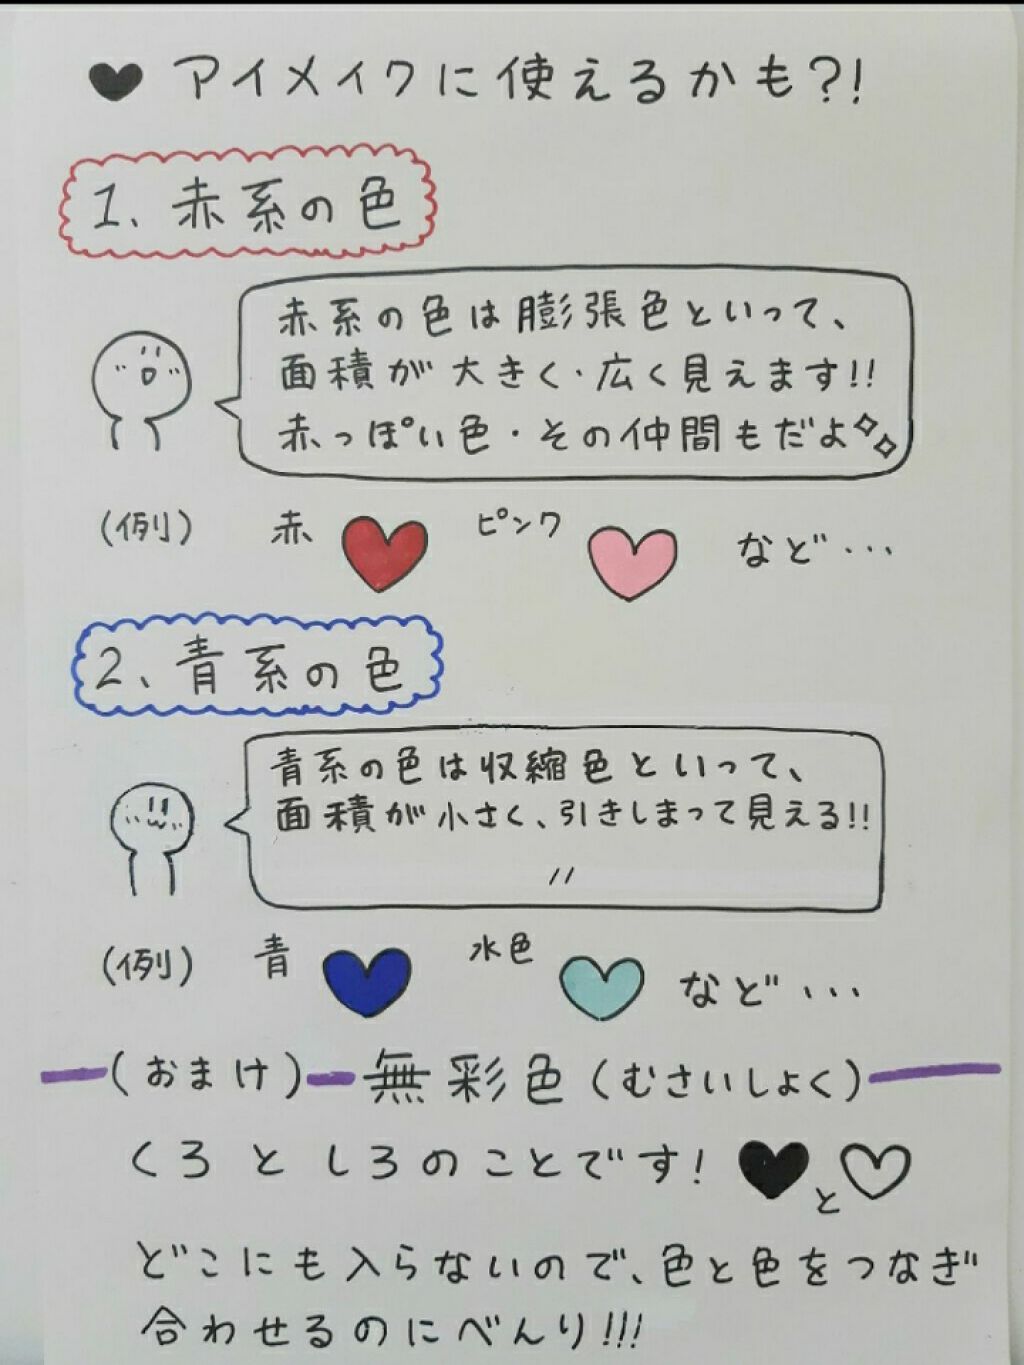 ♥ アイメイクに使えるかも?!
1、赤系の色
赤系の色は膨張色といって、
面積が大きく・広く見えます!!
赤っぽい色・その仲間もだよ
(例) 赤 ピンク など・・・
2、青系の色
青系の色は収縮色といって、
面積が小さく、引きしまって見える!!
〃
(例) 青 水色 など・・・
(おまけ) 無彩色(むさいしょく)
くろとしろのことです! ♥と♡
どこにも入らないので、色と色をつなぎ
合わせるのにべんり!!!